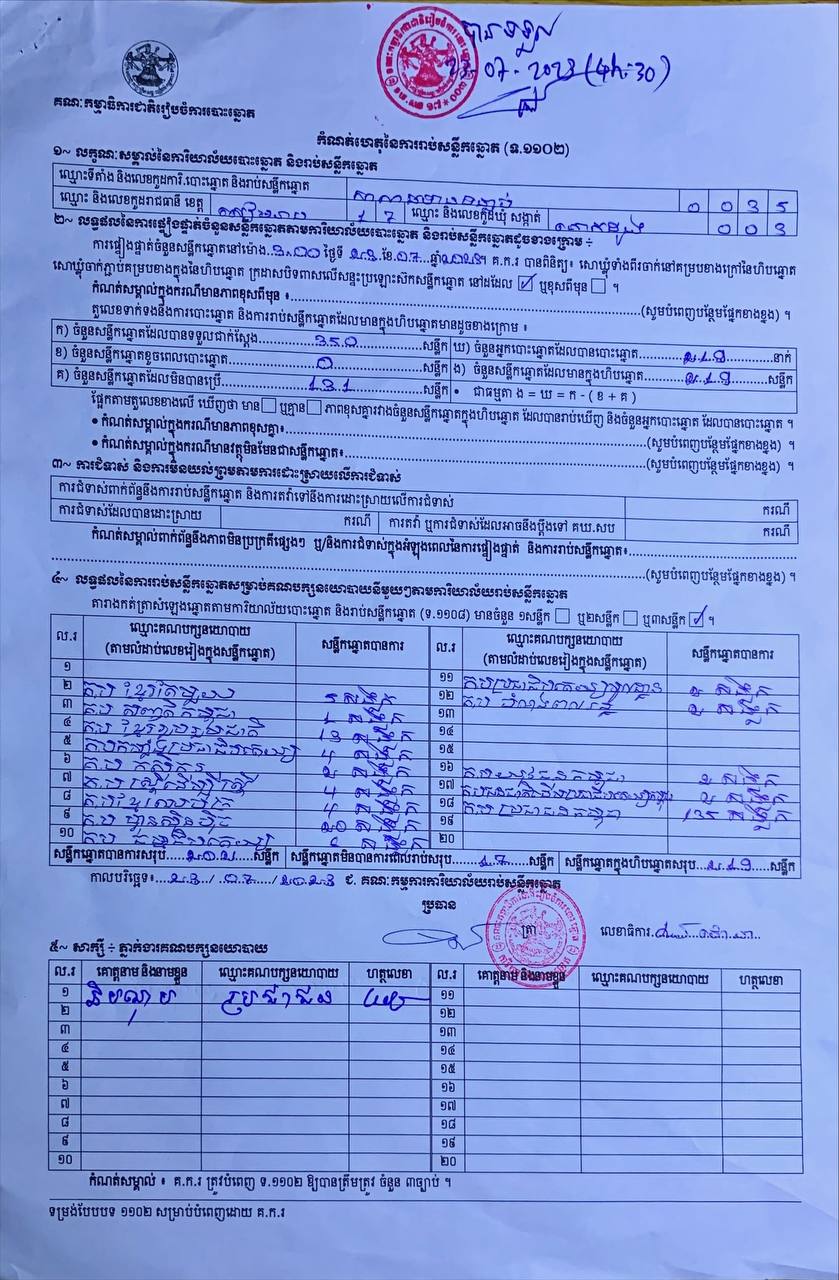 បានទទួល
23.07.2023 (4h:30)
គណៈកម្មាធិការជាតិរៀបចំការបោះឆ្នោត
កំណត់ហេតុនៃការរាប់សន្លឹកឆ្នោត (ទ.១១០២)
១~ លក្ខណៈសម្គាល់នៃការិយាល័យបោះឆ្នោត និងរាប់សន្លឹកឆ្នោត
ឈ្មោះទីតាំង និងលេខកូដការិ.បោះឆ្នោត និងរាប់សន្លឹកឆ្នោត 0 0 3 5
ឈ្មោះ និងលេខកូដរាជធានី ខេត្ត សៀមរាប 1 7 ឈ្មោះ និងលេខកូដឃុំ សង្កាត់ 0 0 3
២~ លទ្ធផលនៃការផ្ទៀងផ្ទាត់ចំនួនសន្លឹកឆ្នោតតាមការិយាល័យបោះឆ្នោត និងរាប់សន្លឹកឆ្នោតដូចខាងក្រោម ÷
ការផ្ទៀងផ្ទាត់ចំនួនសន្លឹកឆ្នោតនៅម៉ោង 3:00 ថ្ងៃទី ២៣ ខែ 07 ឆ្នាំ២០២៣។ គ.ក.រ បានពិនិត្យ៖ សោឃ្លុំទាំងពីរចាក់នៅគម្របខាងក្រៅនៃហិបឆ្នោត
សោឃ្លុំចាក់ភ្ជាប់គម្របខាងក្នុងនៃហិបឆ្នោត ក្រដាសបិទពាសលើសន្ទះប្រឡោះសិកសន្លឹកឆ្នោត នៅដដែល ☑ ឬខុសពីមុន ☐ ។
កំណត់សម្គាល់ក្នុងករណីមានភាពខុសពីមុន ៖ (សូមបំពេញបន្ថែមផ្នែកខាងខ្នង) ។
តួលេខទាក់ទងនឹងការបោះឆ្នោត និងការរាប់សន្លឹកឆ្នោតដែលមានក្នុងហិបឆ្នោតមានដូចខាងក្រោម ៖
ក) ចំនួនសន្លឹកឆ្នោតដែលបានទទួលជាក់ស្តែង 350 សន្លឹក ឃ) ចំនួនអ្នកបោះឆ្នោតដែលបានបោះឆ្នោត ២១៩ នាក់
ខ) ចំនួនសន្លឹកឆ្នោតខូចពេលបោះឆ្នោត 0 សន្លឹក ង) ចំនួនសន្លឹកឆ្នោតដែលមានក្នុងហិបឆ្នោត ២១៩ សន្លឹក
គ) ចំនួនសន្លឹកឆ្នោតដែលមិនបានប្រើ 131 សន្លឹក • ជាធម្មតា ង = ឃ = ក - ( ខ + គ )
ផ្អែកតាមតួលេខខាងលើ ឃើញថា មាន☐ ឬគ្មាន☐ ភាពខុសគ្នារវាងចំនួនសន្លឹកឆ្នោតក្នុងហិបឆ្នោត ដែលបានរាប់ឃើញ និងចំនួនអ្នកបោះឆ្នោត ដែលបានបោះឆ្នោត ។
• កំណត់សម្គាល់ក្នុងករណីមានភាពខុសគ្នា៖ (សូមបំពេញបន្ថែមផ្នែកខាងខ្នង) ។
• កំណត់សម្គាល់ក្នុងករណីមានវត្ថុមិនមែនជាសន្លឹកឆ្នោត៖ (សូមបំពេញបន្ថែមផ្នែកខាងខ្នង) ។
៣~ ការជំទាស់ និងការមិនយល់ព្រមតាមការដោះស្រាយលើការជំទាស់
ការជំទាស់ពាក់ព័ន្ធនឹងការរាប់សន្លឹកឆ្នោត និងការតវ៉ាទៅនឹងការដោះស្រាយលើការជំទាស់ ករណី
ការជំទាស់ដែលបានដោះស្រាយ ករណី ការតវ៉ា ឬការជំទាស់ដែលអាចនឹងប្តឹងទៅ គឃ.សប ករណី
កំណត់សម្គាល់ពាក់ព័ន្ធនឹងភាពមិនប្រក្រតីផ្សេងៗ ឬ/និងការជំទាស់ក្នុងអំឡុងពេលនៃការផ្ទៀងផ្ទាត់ និងការរាប់សន្លឹកឆ្នោត៖
(សូមបំពេញបន្ថែមផ្នែកខាងខ្នង) ។
៤~ លទ្ធផលនៃការរាប់សន្លឹកឆ្នោតសម្រាប់គណបក្សនយោបាយនីមួយៗតាមការិយាល័យរាប់សន្លឹកឆ្នោត
តារាងកត់ត្រាសំឡេងឆ្នោតតាមការិយាល័យបោះឆ្នោត និងរាប់សន្លឹកឆ្នោត (ទ.១១០៨) មានចំនួន ១សន្លឹក ☐ ឬ២សន្លឹក ☐ ឬ៣សន្លឹក ☑ ។
ល.រ ឈ្មោះគណបក្សនយោបាយ សន្លឹកឆ្នោតបានការ ល.រ ឈ្មោះគណបក្សនយោបាយ សន្លឹកឆ្នោតបានការ
(តាមលំដាប់លេខរៀងក្នុងសន្លឹកឆ្នោត) (តាមលំដាប់លេខរៀងក្នុងសន្លឹកឆ្នោត)
១ ១១
២ គប ខ្មែរតែមួយ សន្លឹក ១២ ២ សន្លឹក
៣ សន្លឹក ១៣ ២ សន្លឹក
៤ 13 សន្លឹក ១៤
៥ 4 សន្លឹក ១៥
៦ គប កសិករ ២ សន្លឹក ១៦
៧ គប ស្ត្រីដើម្បីស្ត្រី 4 សន្លឹក ១៧ សន្លឹក
៨ 4 សន្លឹក ១៨ ២ សន្លឹក
៩ គប ហ្វ៊ុនស៊ិនប៉ិច ២០ សន្លឹក ១៩ គប ប្រជាជនកម្ពុជា 135 សន្លឹក
១០ សន្លឹក ២០
សន្លឹកឆ្នោតបានការសរុប ២០២ សន្លឹក សន្លឹកឆ្នោតមិនបានការដែលរាប់សរុប 17 សន្លឹក សន្លឹកឆ្នោតក្នុងហិបឆ្នោតសរុប ២១៩ សន្លឹក
កាលបរិច្ឆេទ៖ ២៣ / 07 / ២០២៣ ជ. គណៈកម្មការការិយាល័យរាប់សន្លឹកឆ្នោត
ប្រធាន
ត្រា
លេខាធិការ
៥~ សាក្សី ÷ ភ្នាក់ងារគណបក្សនយោបាយ
ល.រ គោត្តនាម និងនាមខ្លួន ឈ្មោះគណបក្សនយោបាយ ហត្ថលេខា ល.រ គោត្តនាម និងនាមខ្លួន ឈ្មោះគណបក្សនយោបាយ ហត្ថលេខា
១ ប្រជាជន ១១
២ ១២
៣ ១៣
៤ ១៤
៥ ១៥
៦ ១៦
៧ ១៧
៨ ១៨
៩ ១៩
១០ ២០
កំណត់សម្គាល់ ៖ គ.ក.រ ត្រូវបំពេញ ទ.១១០២ ឱ្យបានត្រឹមត្រូវ ចំនួន ៣ច្បាប់ ។
ទម្រង់បែបបទ ១១០២ សម្រាប់បំពេញដោយ គ.ក.រ